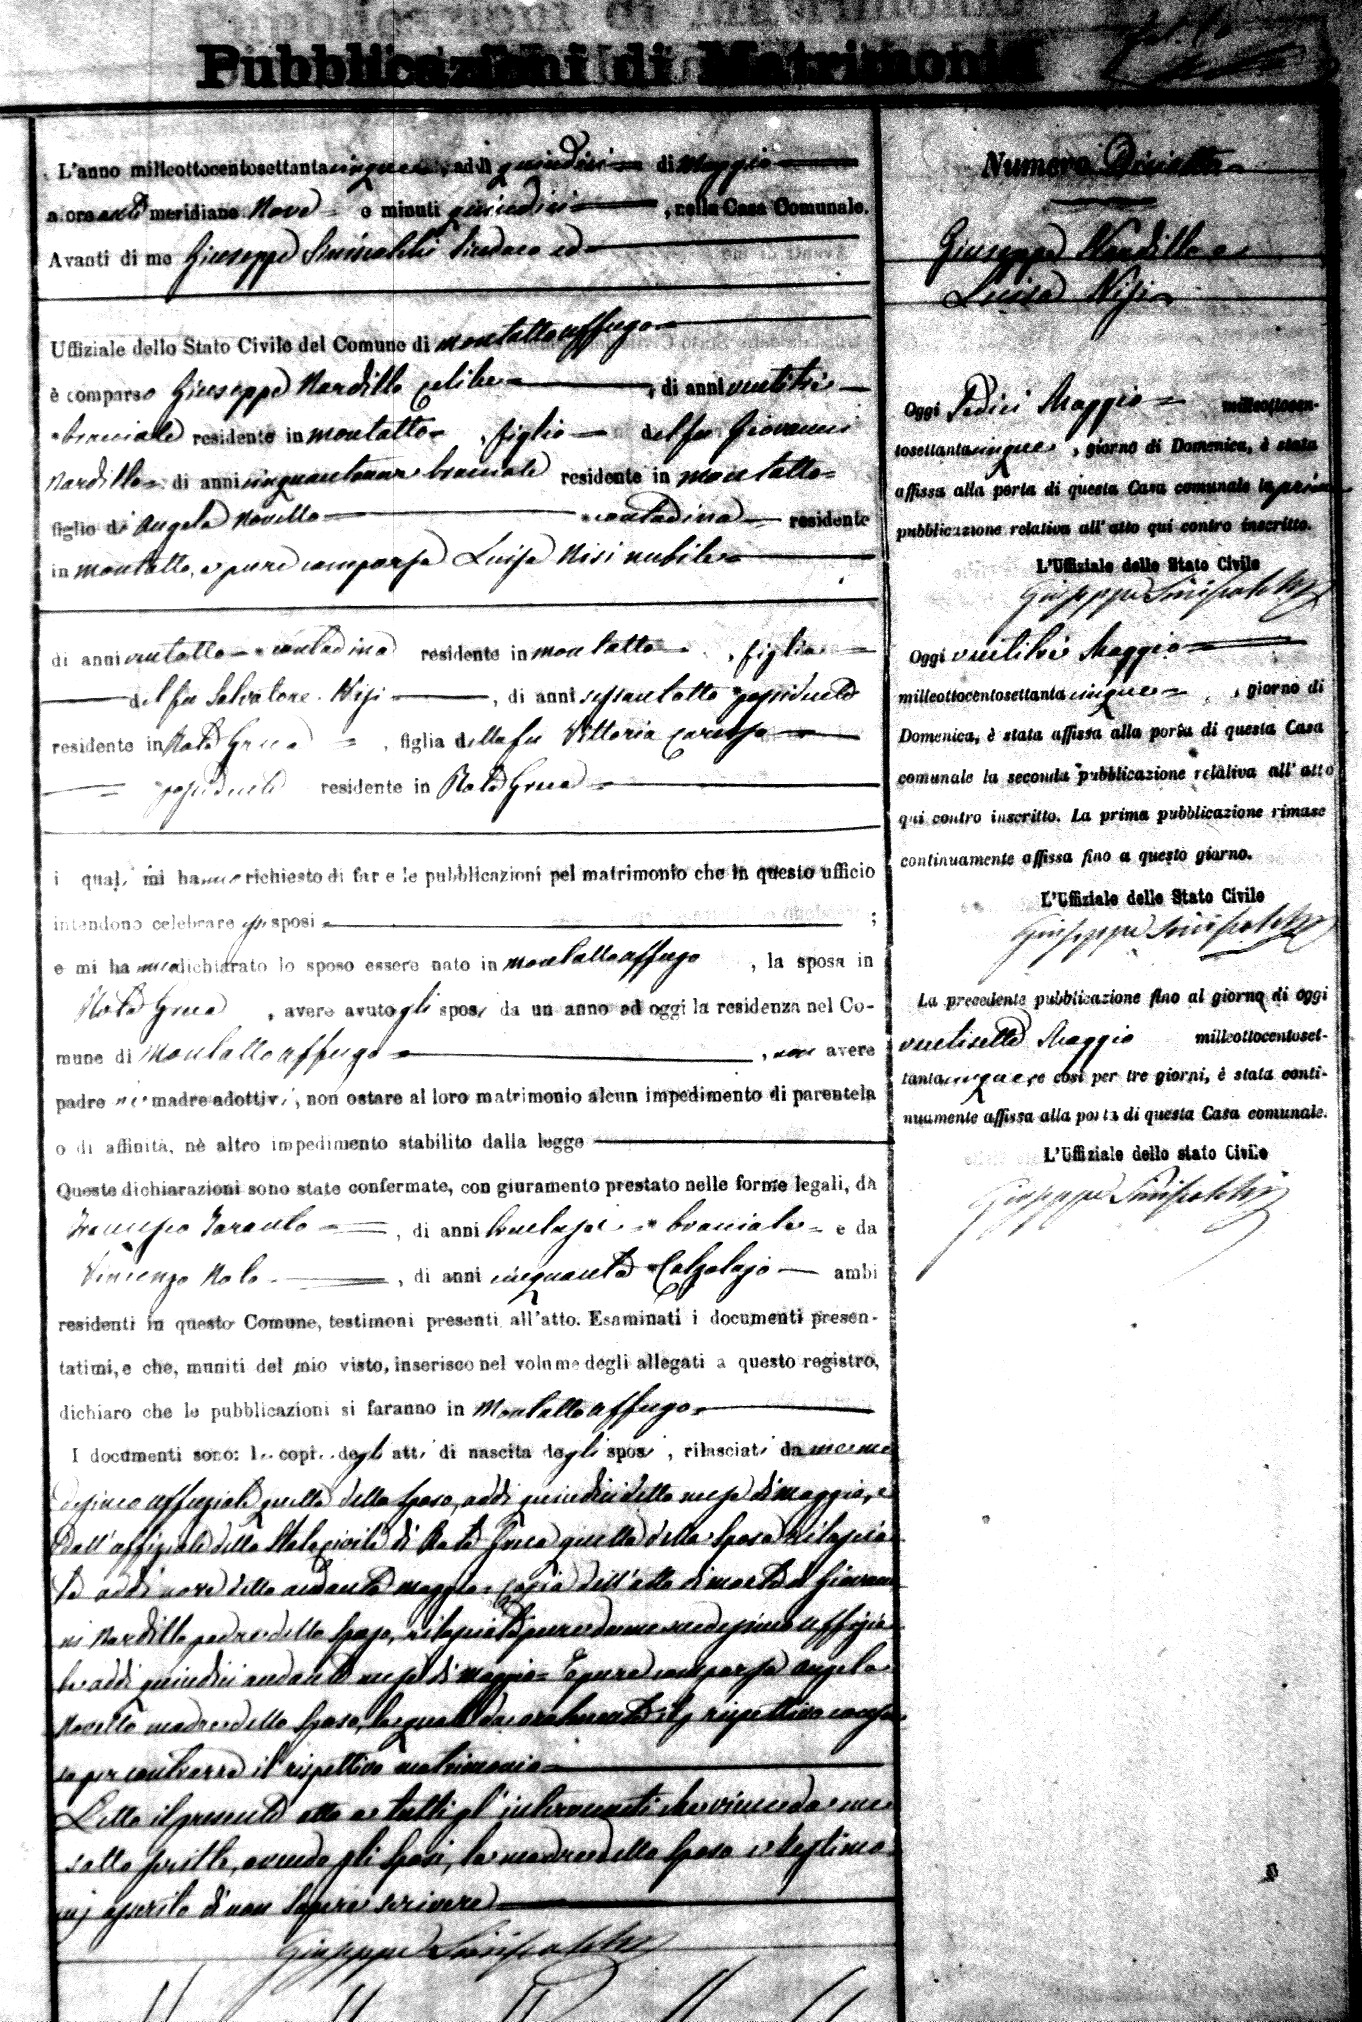 Pubblicazioni di Matrimonio
L'anno milleottocentosettantacinque, addì quindici di Maggio
a ore anti meridiane Nove e minuti quindici, nella Casa Comunale.
Avanti di me Giuseppe Sinisalchi Sindaco ed
Uffiziale dello Stato Civile del Comune di Montaltouffugo
è comparso Giuseppe Nardillo celibe, di anni ventitrè
bracciale residente in Montalto, figlio del fu Giovanni
Nardillo di anni cinquantanove bracciale residente in Montalto
figlio di Angela Novello contadina residente
in Montalto, e pure comparsa Luisa Nisi nubile
di anni ventotto contadina residente in Montalto, figlia
del fu Salvatore Nisi, di anni sessantotto possidente
residente in Rota Greca, figlia della fu Vittoria Caruso
possidente residente in Rota Greca
i quali mi hanno richiesto di fare le pubblicazioni pel matrimonio che in questo ufficio
intendono celebrare essi sposi ;
e mi hanno dichiarato lo sposo essere nato in Montaltouffugo, la sposa in
Rota Greca, avere avuto gli sposi da un anno ad oggi la residenza nel Co-
mune di Montaltouffugo, non avere
padre nè madre adottivi, non ostare al loro matrimonio alcun impedimento di parentela
o di affinità, nè altro impedimento stabilito dalla legge
Queste dichiarazioni sono state confermate, con giuramento prestato nelle forme legali, da
Francesco Taranto, di anni trentasei bracciale e da
Vincenzo Nolo, di anni cinquanta Calzolajo ambi
residenti in questo Comune, testimoni presenti all'atto. Esaminati i documenti presen-
tatimi, e che, muniti del mio visto, inserisco nel volume degli allegati a questo registro,
dichiaro che le pubblicazioni si faranno in Montaltouffugo
I documenti sono: le copie degli atti di nascita degli sposi, rilasciati da me me
desimo uffiziale quella dello sposo, addì quindici dello mese di maggio, e
dall'uffiziale dello Stato civile di Rota Greca quella della sposa rilascia
ta addì nove dello andante maggio. Copia dell'atto di morte di Giovan
ni Nardillo padre dello sposo, rilasciata pure da me medesimo uffizia
le addì quindici andante mese di maggio. È pure comparsa Angela
Novello madre dello sposo, la quale dà oralmente il rispettivo consen
so per contrarre il rispettivo matrimonio
Letto il presente atto a tutti gl'intervenuti che viene da me
sottoscritto, avendo gli sposi, la madre dello sposo e testimo
nj asserito di non sapere scrivere
Giuseppe Sinisalchi
Numero Diciotto
Giuseppe Nardillo e
Luisa Nisi
Oggi Sedici Maggio milleottocen-
tosettantacinque, giorno di Domenica, è stata
affissa alla porta di questa Casa comunale la prima
pubblicazione relativa all'atto qui contro inscritto.
L'Uffiziale dello Stato Civile
Giuseppe Sinisalchi
Oggi ventitrè Maggio
milleottocentosettantacinque, giorno di
Domenica, è stata affissa alla porta di questa Casa
comunale la seconda pubblicazione relativa all'atto
qui contro inscritto. La prima pubblicazione rimase
continuamente affissa fino a questo giorno.
L'Uffiziale dello Stato Civile
Giuseppe Sinisalchi
La precedente pubblicazione fino al giorno di oggi
ventisette Maggio milleottocentoset-
tantacinque e così per tre giorni, è stata conti-
nuamente affissa alla porta di questa Casa comunale.
L'Uffiziale dello stato Civile
Giuseppe Sinisalchi